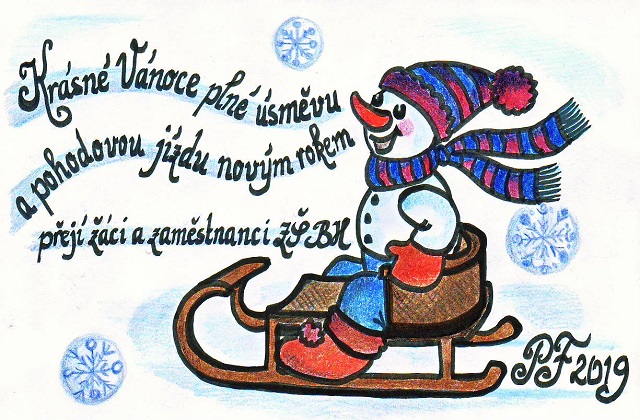 Krásné Vánoce plné úsměvu
a pohodovou jízdu novým rokem
přejí žáci a zaměstnanci ZŠ BH
PF 2019